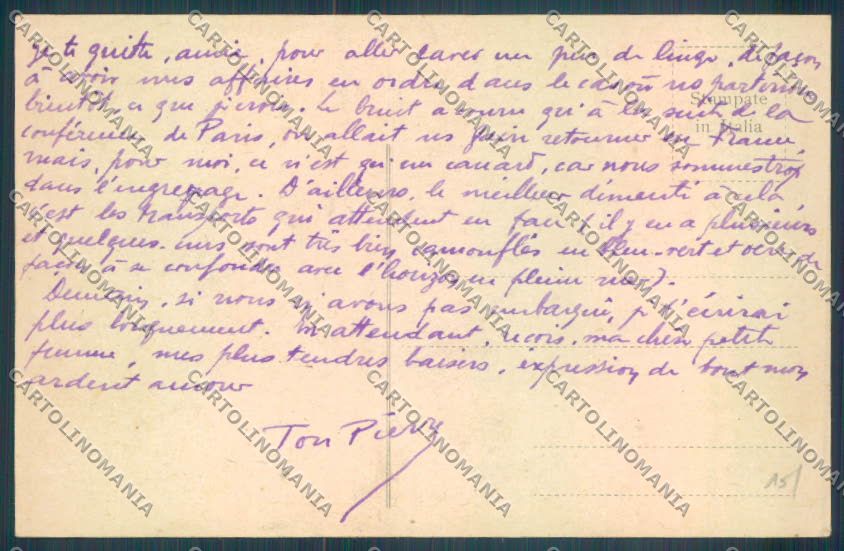 je te quitte, amie, pour aller laver un peu de linge, de façon
à avoir mes affaires en ordre dans le cas où ns partirions
bientôt, ce que je crois. Le bruit a couru qu'à la suite de la
conférence de Paris, on allait ns faire retourner en France,
mais, pour moi, ce n'est qu'un canard, car nous sommes trop
dans l'engrenage. D'ailleurs, le meilleur démenti à cela,
c'est les transports qui attendent en face (il y en a plusieurs
et quelques-uns sont très bien camouflés en bleu-vert et ocre de
façon à se confondre avec l'horizon en pleine mer).
Demain, si nous n'avons pas embarqué, je t'écrirai
plus longuement. En attendant, reçois, ma chère petite
femme, mes plus tendres baisers, expression de tout mon
ardent amour
Ton Pierre
Stampate
in Italia
15/
CARTOLINOMANIA